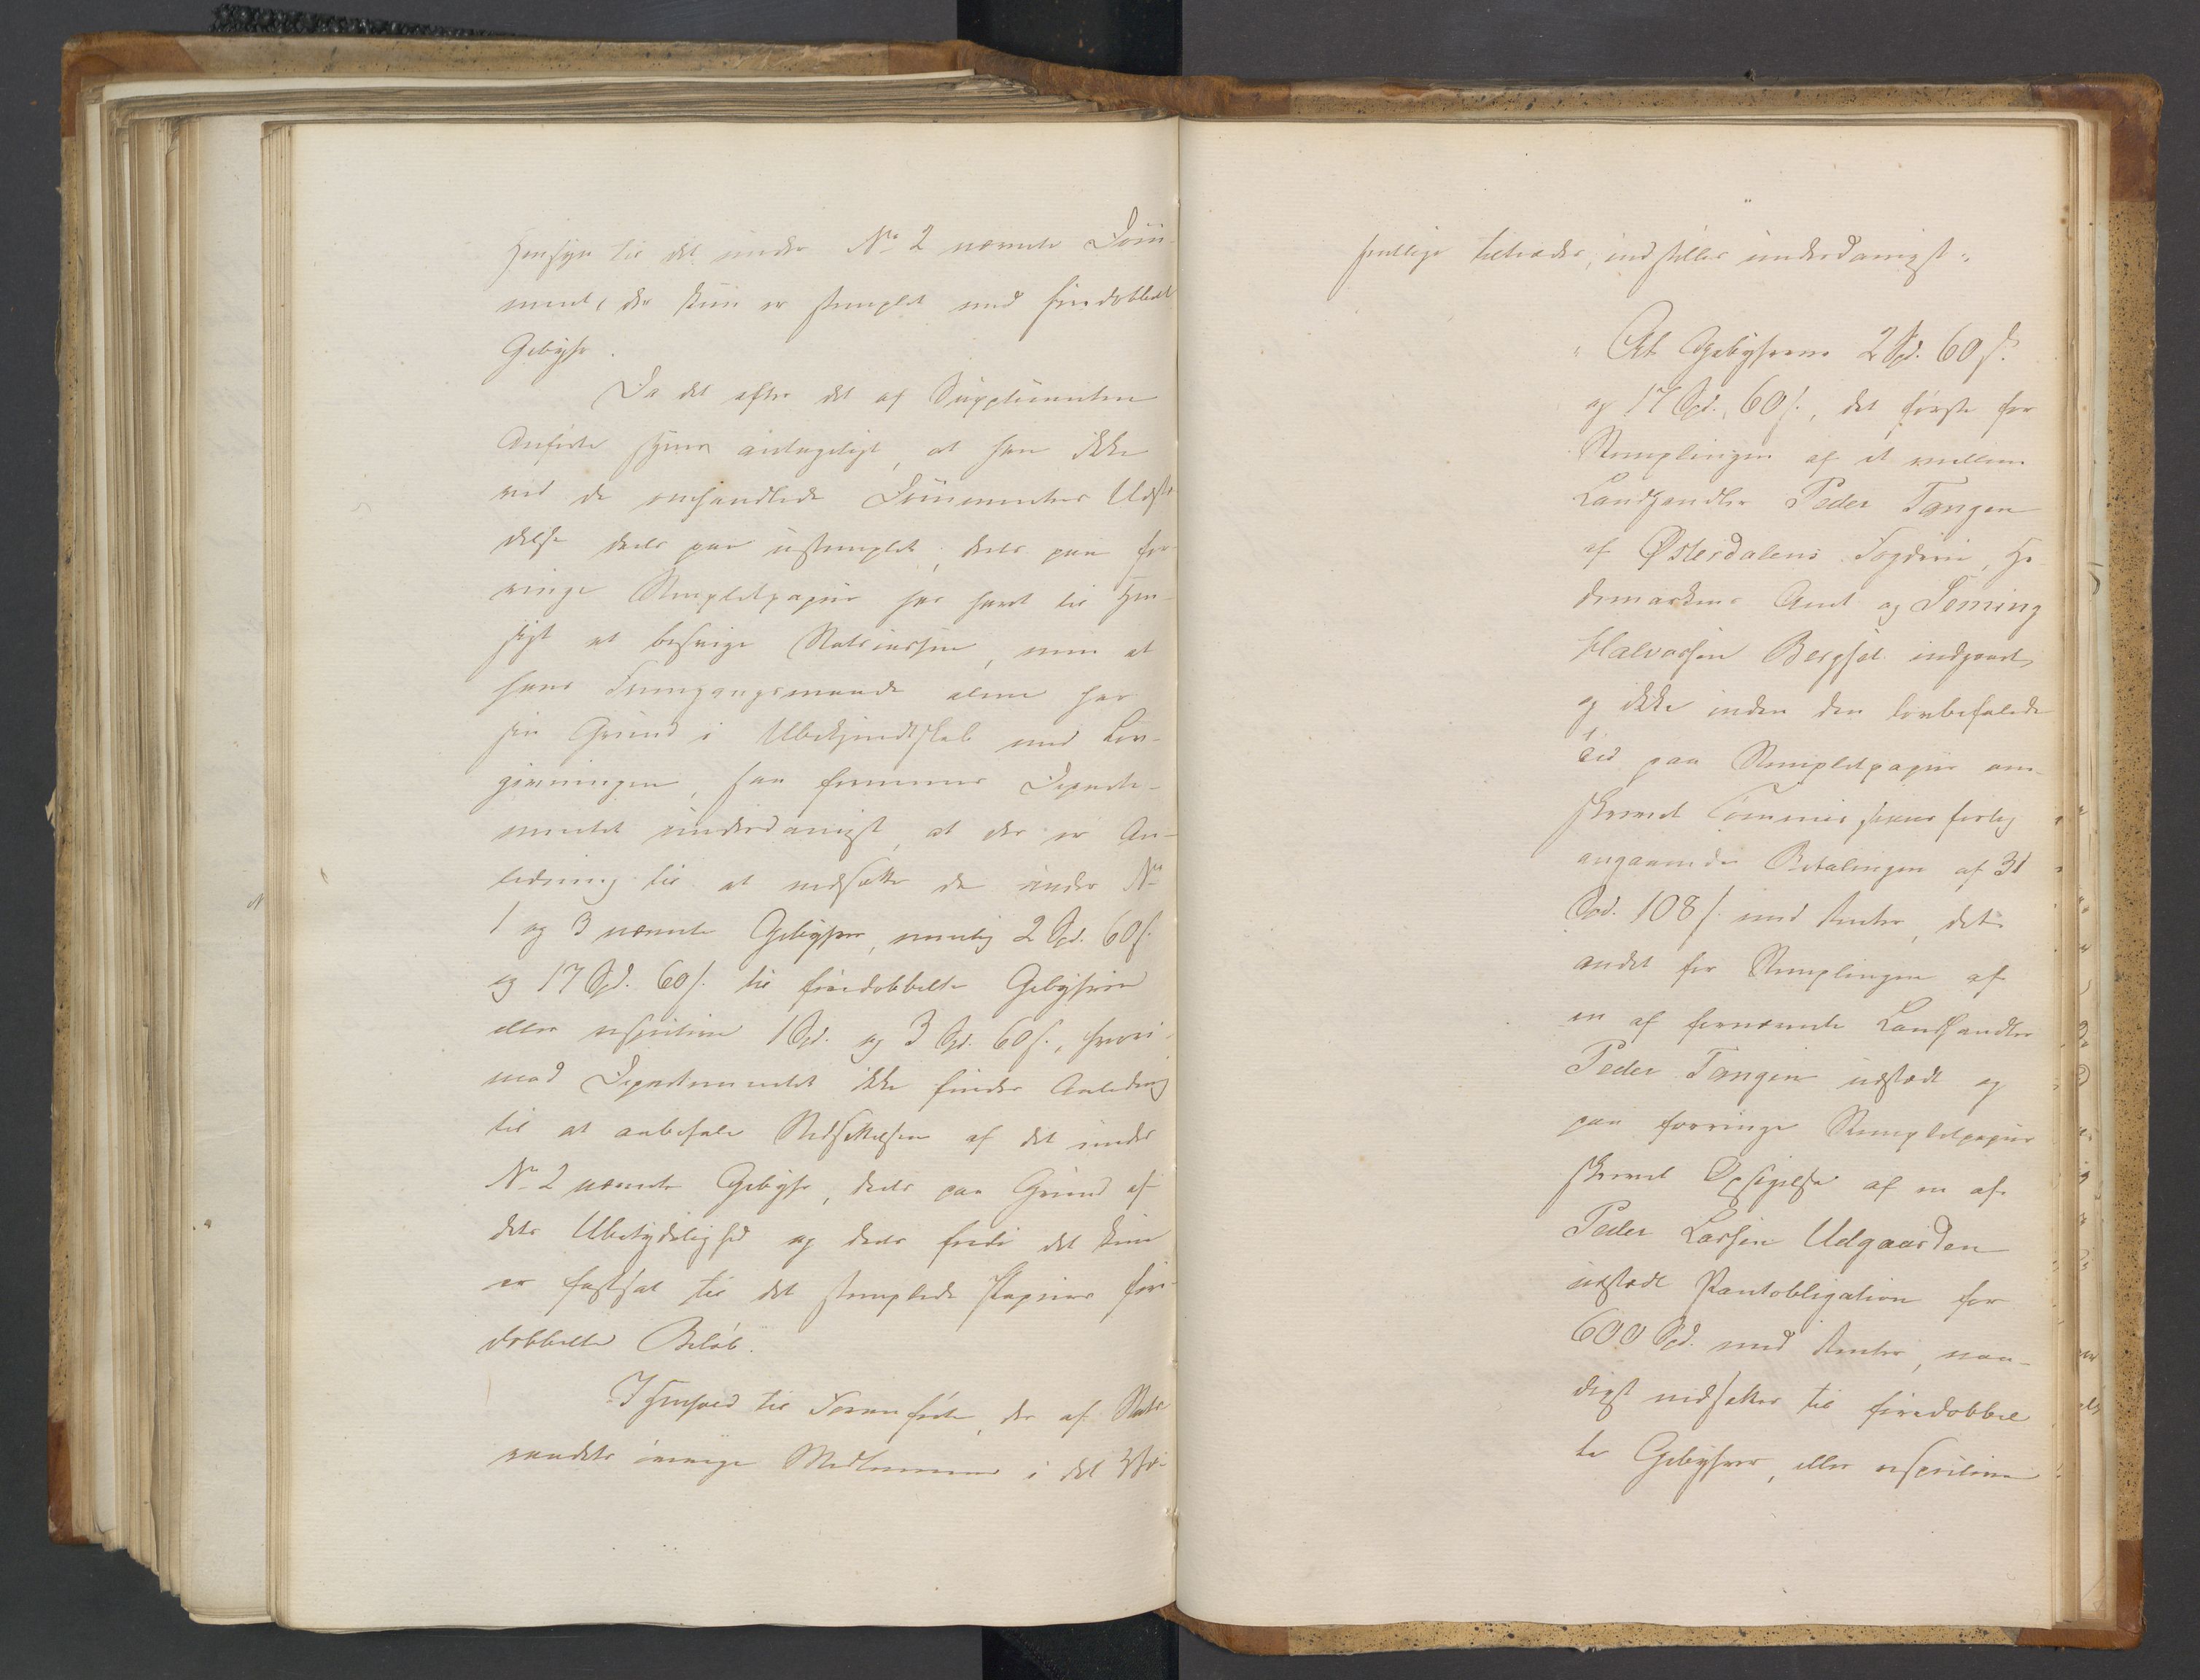 Hensyn til det under No 2 nævnte Doku-
ment, der kun er stemplet med firedobbelt
Gebyhr.
Da det efter det af Supplicanten
Anførte synes antageligt, at han ikke
ved de omhandlede Dokumenters Udste-
delse deels paa ustemplet, deels paa for
ringe Stempletpapir har havt til Hen-
sigt at besvige Statskassen, men at
hans Fremgangsmaade alene har
sin Grund i Ubekjendtskab med Lov-
givningen, saa formener Departe-
mentet underdanigst, at der er An-
ledning til at nedsætte de under No
1 og 3 nævnte Gebyhrer, nemlig 2 Spd. 60 s.
og 17 Spd. 60 s. til firedobbelte Gebyhrer
eller respective 1 Spd. og 3 Spd. 60 s., hvori-
mod Departementet ikke finder Anledning
til at anbefale Nedsættelsen af det under
No 2 nævnte Gebyhr, deels paa Grund af
dets Ubetydelighed og deels fordi det kun
er fastsat til det stemplede Papiirs fire-
dobbelte Beløb.
I Henhold til Foranførte, der af Stats-
raadets øvrige Medlemmer i det Væ-
sentlige tiltrædes, indstilles underdanigst:
"At Gebyhrerne 2 Spd. 60 s.
og 17 Spd. 60 s., det første for
Stemplingen af et mellem
Landhandler Peder Tangen
af Østerdalens Fogderi, He-
demarkens Amt og Heming
Halvorsen Bergset indgaaet,
og ikke inden den lovbefalede
Tid paa Stempletpapir om-
skrevet Commissionsforlig
angaaende Betalingen af 31
Spd. 108 s. med Renter, det
andet for Stemplingen af
en af fornævnte Landhandler
Peder Tangen udstædt og
paa forringe Stempletpapir
skrevet Opsigelse af en af
Peder Larsen Udgaarden
udstædt Pantobligation for
600 Spd. med Renter, naa-
digst nedsættes til firedobbel-
te Gebyhrer, eller respective